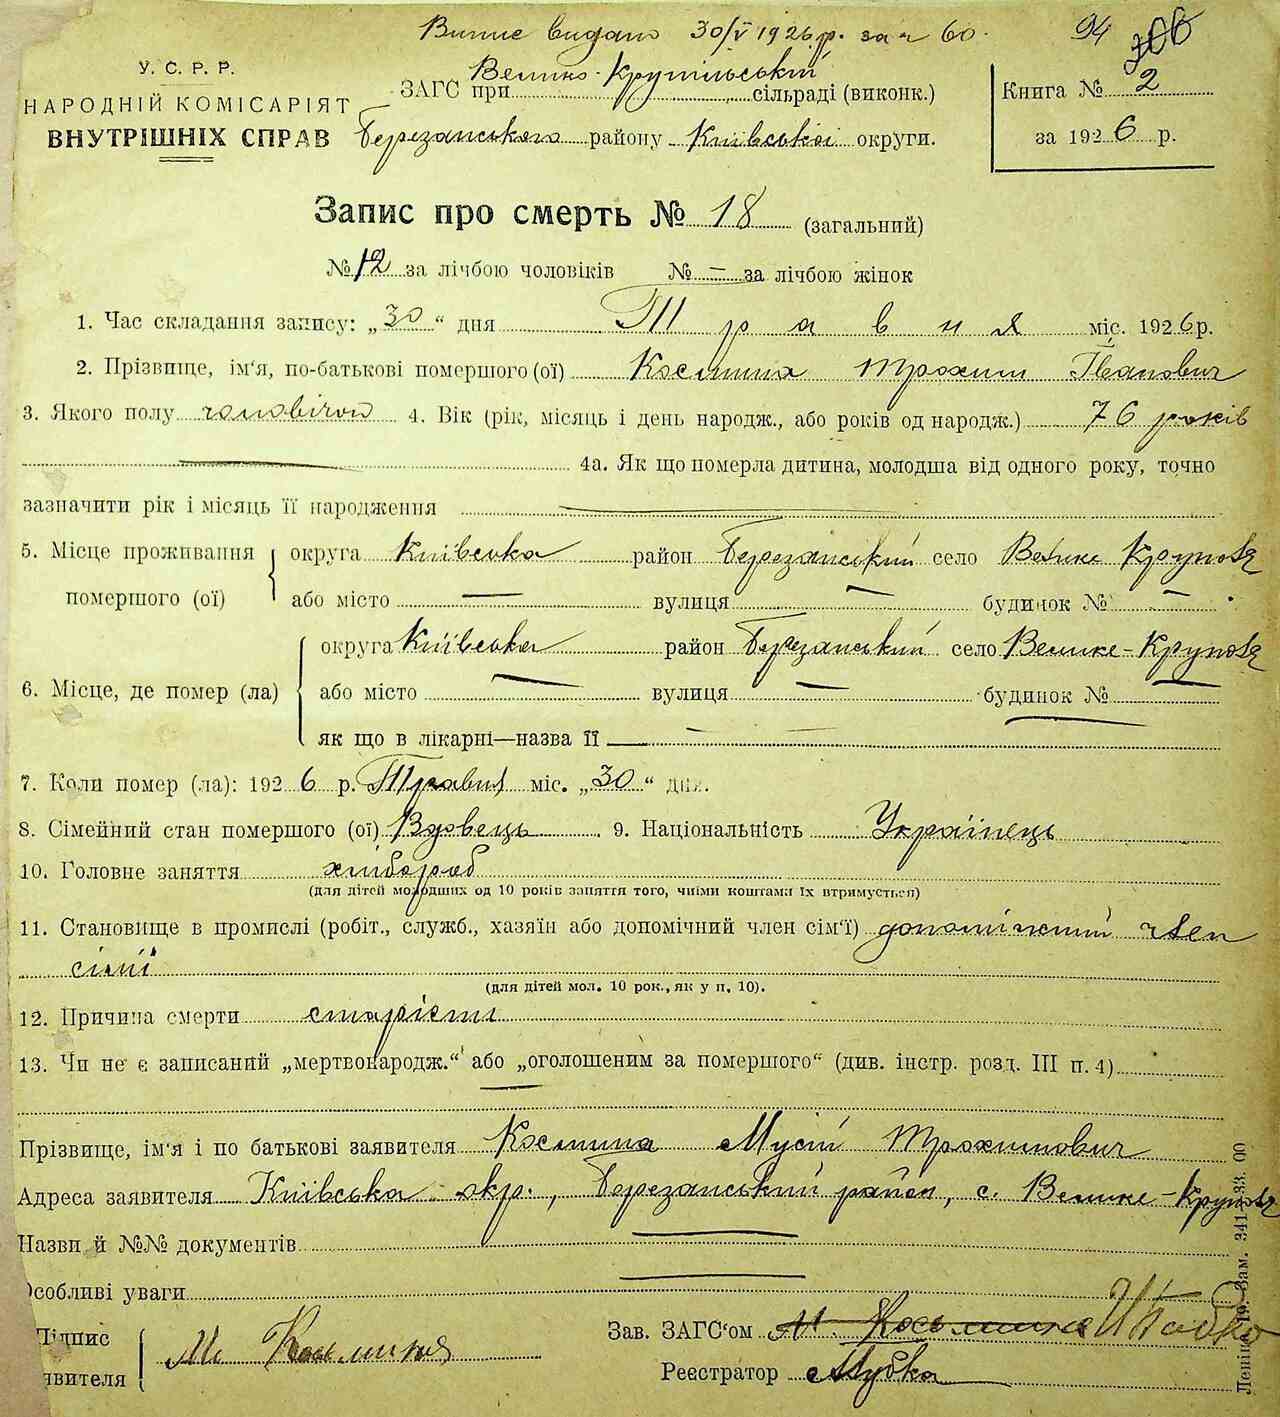 Випис видано 30/V 1926 р. за ч 60. 94
У. С. Р. Р.
НАРОДНІЙ КОМІСАРІЯТ
ВНУТРІШНІХ СПРАВ
ЗАГС при Велико-Крупільській сільраді (виконк.)
Березанського району Київської округи.
Книга № 2
за 1926 р.
Запис про смерть № 18 (загальний)
№ 12 за лічбою чоловіків № – за лічбою жінок
1. Час складання запису: „30“ дня Травня міс. 1926 р.
2. Прізвище, ім'я, по-батькові помершого (ої) Космина Трохим Іванович
3. Якого полу чоловічою 4. Вік (рік, місяць і день народж., або років од народж.) 76 років
4а. Як що померла дитина, молодша від одного року, точно
зазначити рік і місяць її народження
5. Місце проживання помершого (ої) округа Київська район Березанський село Велике Круполє
або місто — вулиця — будинок № —
6. Місце, де помер (ла) округа Київська район Березанський село Велике-Круполє
або місто — вулиця — будинок № —
як що в лікарні—назва її
7. Коли помер (ла): 1926 р. Травня міс. „30“ дня.
8. Сімейний стан помершого (ої) Вдовець 9. Національність Українець
10. Головне заняття хлібороб
(для дітей молодших од 10 років заняття того, чиїми коштами їх втримується)
11. Становище в промислі (робіт., служб., хазяїн або допомічний член сім'ї) допоміжний член
сімї
(для дітей мол. 10 рок., як у п. 10).
12. Причина смерти старість
13. Чи не є записаний „мертвонародж.“ або „оголошеним за помершого“ (див. інстр. розд. III п. 4)
Прізвище, ім'я і по батькові заявителя Космина Мусій Трохимович
Адреса заявителя Київська окр., Березанський район, с. Велике-Круполє
Назви й №№ документів
Особливі уваги
Підпис
явителя
М Косьмина
Зав. ЗАГС'ом М. Косьмина
Реєстратор